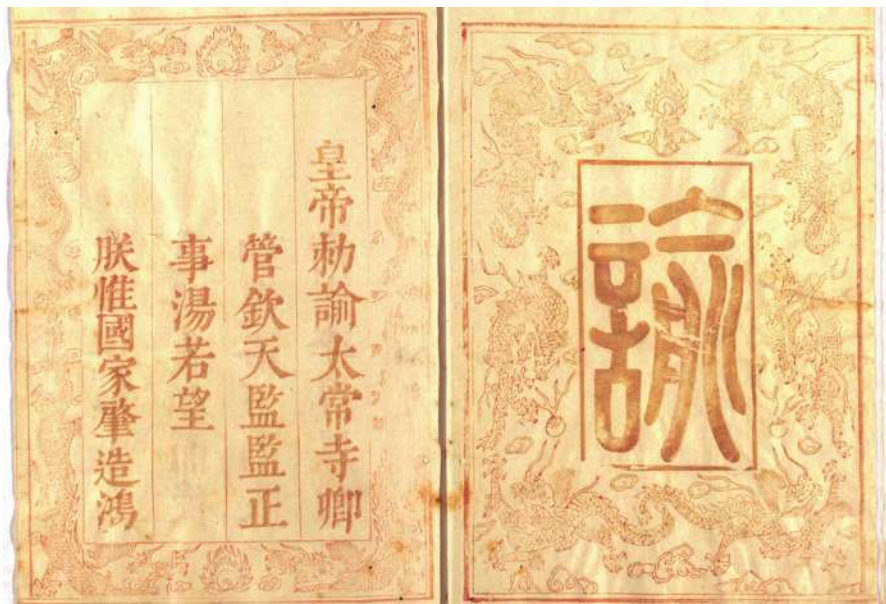 諭
皇帝勅諭太常寺卿
管欽天監監正
事湯若望
朕惟國家肇造鴻